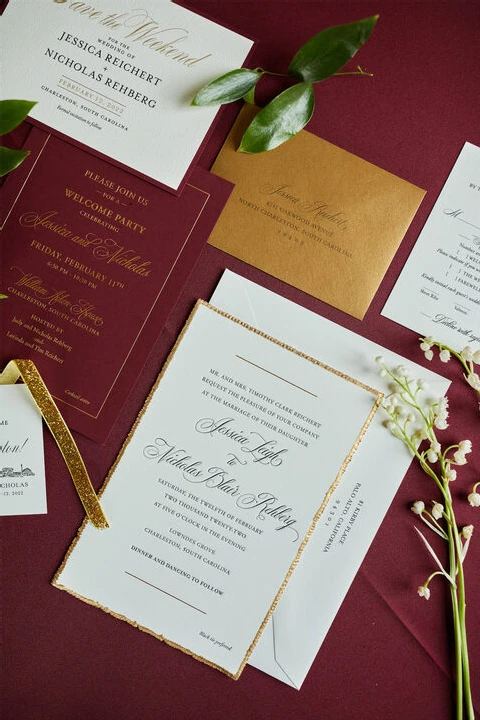 Save the Weekend
FOR THE
WEDDING OF
JESSICA REICHERT
+
NICHOLAS REHBERG
FEBRUARY 12, 2022
CHARLESTON, SOUTH CAROLINA
Formal invitation to follow
PLEASE JOIN US
FOR A
WELCOME PARTY
CELEBRATING
Jessica and Nicholas
FRIDAY, FEBRUARY 11TH
6:30 PM - 10:30 PM
CHARLESTON, SOUTH CAROLINA
HOSTED BY
Judy and Nicholas Rehberg
and
Lorinda and Tim Reichert
Cocktail attire
Jessica Reichert
OAKWOOD AVENUE
NORTH CHARLESTON, SOUTH CAROLINA
MR. AND MRS. TIMOTHY CLARK REICHERT
REQUEST THE PLEASURE OF YOUR COMPANY
AT THE MARRIAGE OF THEIR DAUGHTER
Jessica Leigh
to
Nicholas Blair Rehberg
SATURDAY, THE TWELFTH OF FEBRUARY
TWO THOUSAND TWENTY TWO
AT FIVE O'CLOCK IN THE EVENING
LOWNDES GROVE
CHARLESTON, SOUTH CAROLINA
DINNER AND DANCING TO FOLLOW
Black tie preferred
81 KIRBY PLACE
PALO ALTO, CALIFORNIA
94301
BY T
M
Number
Please indicate if you
WE
FAREWEL
Kindly